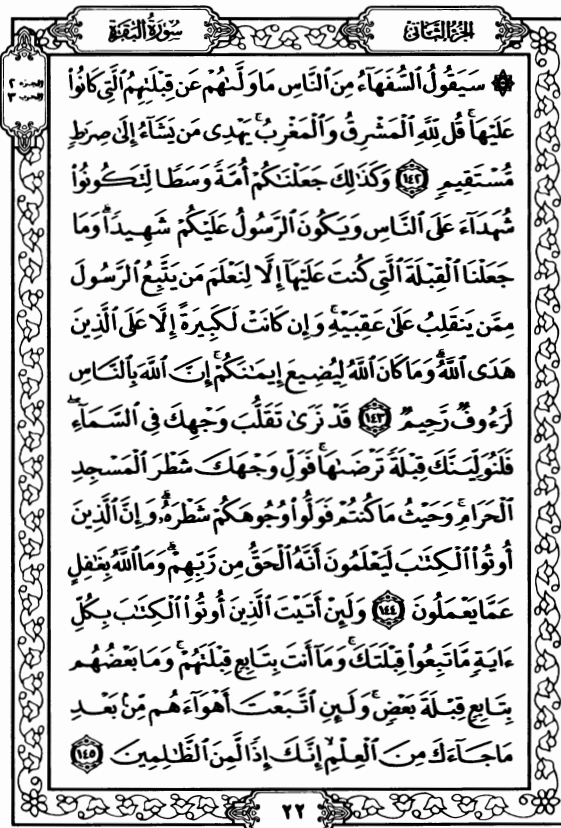 سُورَةُ البَقَرَةِ
الجُزءُ الثَّانِي
الجزء ٢
الحزب ٣
۞ سَيَقُولُ ٱلسُّفَهَآءُ مِنَ ٱلنَّاسِ مَا وَلَّىٰهُمْ عَن قِبْلَتِهِمُ ٱلَّتِى كَانُوا۟
عَلَيْهَا ۚ قُل لِّلَّهِ ٱلْمَشْرِقُ وَٱلْمَغْرِبُ ۚ يَهْدِى مَن يَشَآءُ إِلَىٰ صِرَٰطٍ
مُّسْتَقِيمٍ ١٤٢ وَكَذَٰلِكَ جَعَلْنَٰكُمْ أُمَّةً وَسَطًا لِّتَكُونُوا۟
شُهَدَآءَ عَلَى ٱلنَّاسِ وَيَكُونَ ٱلرَّسُولُ عَلَيْكُمْ شَهِيدًا ۗ وَمَا
جَعَلْنَا ٱلْقِبْلَةَ ٱلَّتِى كُنتَ عَلَيْهَآ إِلَّا لِنَعْلَمَ مَن يَتَّبِعُ ٱلرَّسُولَ
مِمَّن يَنقَلِبُ عَلَىٰ عَقِبَيْهِ ۚ وَإِن كَانَتْ لَكَبِيرَةً إِلَّا عَلَى ٱلَّذِينَ
هَدَى ٱللَّهُ ۗ وَمَا كَانَ ٱللَّهُ لِيُضِيعَ إِيمَٰنَكُمْ ۚ إِنَّ ٱللَّهَ بِٱلنَّاسِ
لَرَءُوفٌ رَّحِيمٌ ١٤٣ قَدْ نَرَىٰ تَقَلُّبَ وَجْهِكَ فِى ٱلسَّمَآءِ ۖ
فَلَنُوَلِّيَنَّكَ قِبْلَةً تَرْضَىٰهَا ۚ فَوَلِّ وَجْهَكَ شَطْرَ ٱلْمَسْجِدِ
ٱلْحَرَامِ ۚ وَحَيْثُ مَا كُنتُمْ فَوَلُّوا۟ وُجُوهَكُمْ شَطْرَهُۥ ۗ وَإِنَّ ٱلَّذِينَ
أُوتُوا۟ ٱلْكِتَٰبَ لَيَعْلَمُونَ أَنَّهُ ٱلْحَقُّ مِن رَّبِّهِمْ ۗ وَمَا ٱللَّهُ بِغَٰفِلٍ
عَمَّا يَعْمَلُونَ ١٤٤ وَلَئِنْ أَتَيْتَ ٱلَّذِينَ أُوتُوا۟ ٱلْكِتَٰبَ بِكُلِّ
ءَايَةٍ مَّا تَبِعُوا۟ قِبْلَتَكَ ۚ وَمَآ أَنتَ بِتَابِعٍ قِبْلَتَهُمْ ۚ وَمَا بَعْضُهُم
بِتَابِعٍ قِبْلَةَ بَعْضٍ ۚ وَلَئِنِ ٱتَّبَعْتَ أَهْوَآءَهُم مِّنۢ بَعْدِ
مَا جَآءَكَ مِنَ ٱلْعِلْمِ ۙ إِنَّكَ إِذًا لَّمِنَ ٱلظَّٰلِمِينَ ١٤٥
٢٢